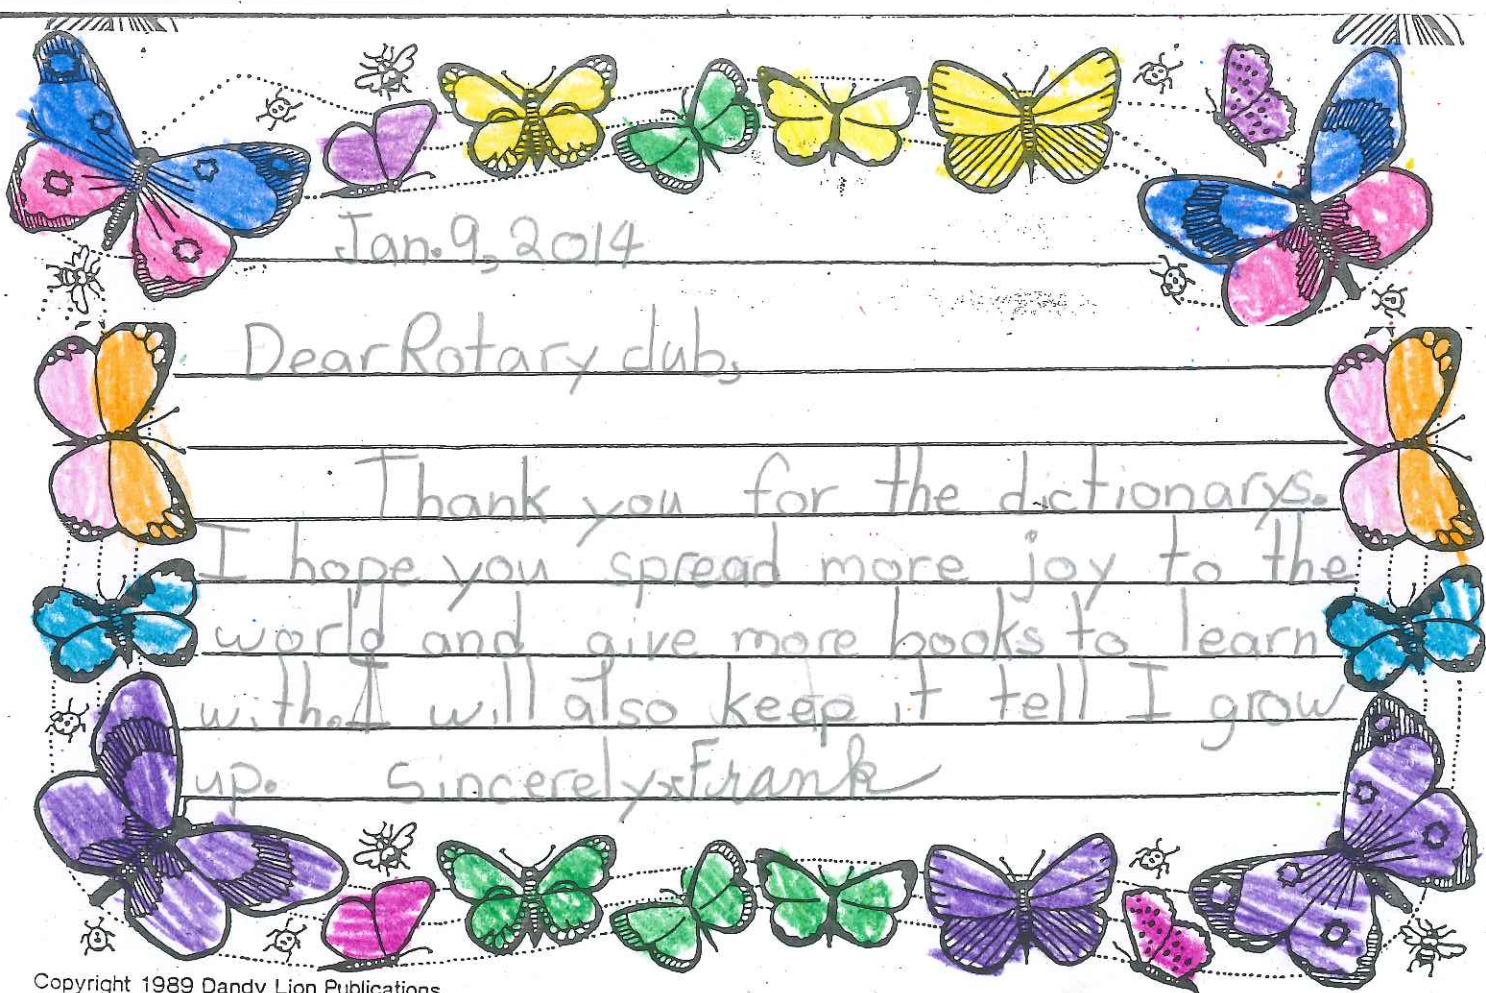 Jan. 9, 2014
Dear Rotary club,
Thank you for the dictionarys.
I hope you spread more joy to the
world and give more books to learn
with. I will also keep it tell I grow
up. Sincerely, Frank
Copyright 1989 Dandy Lion Publications